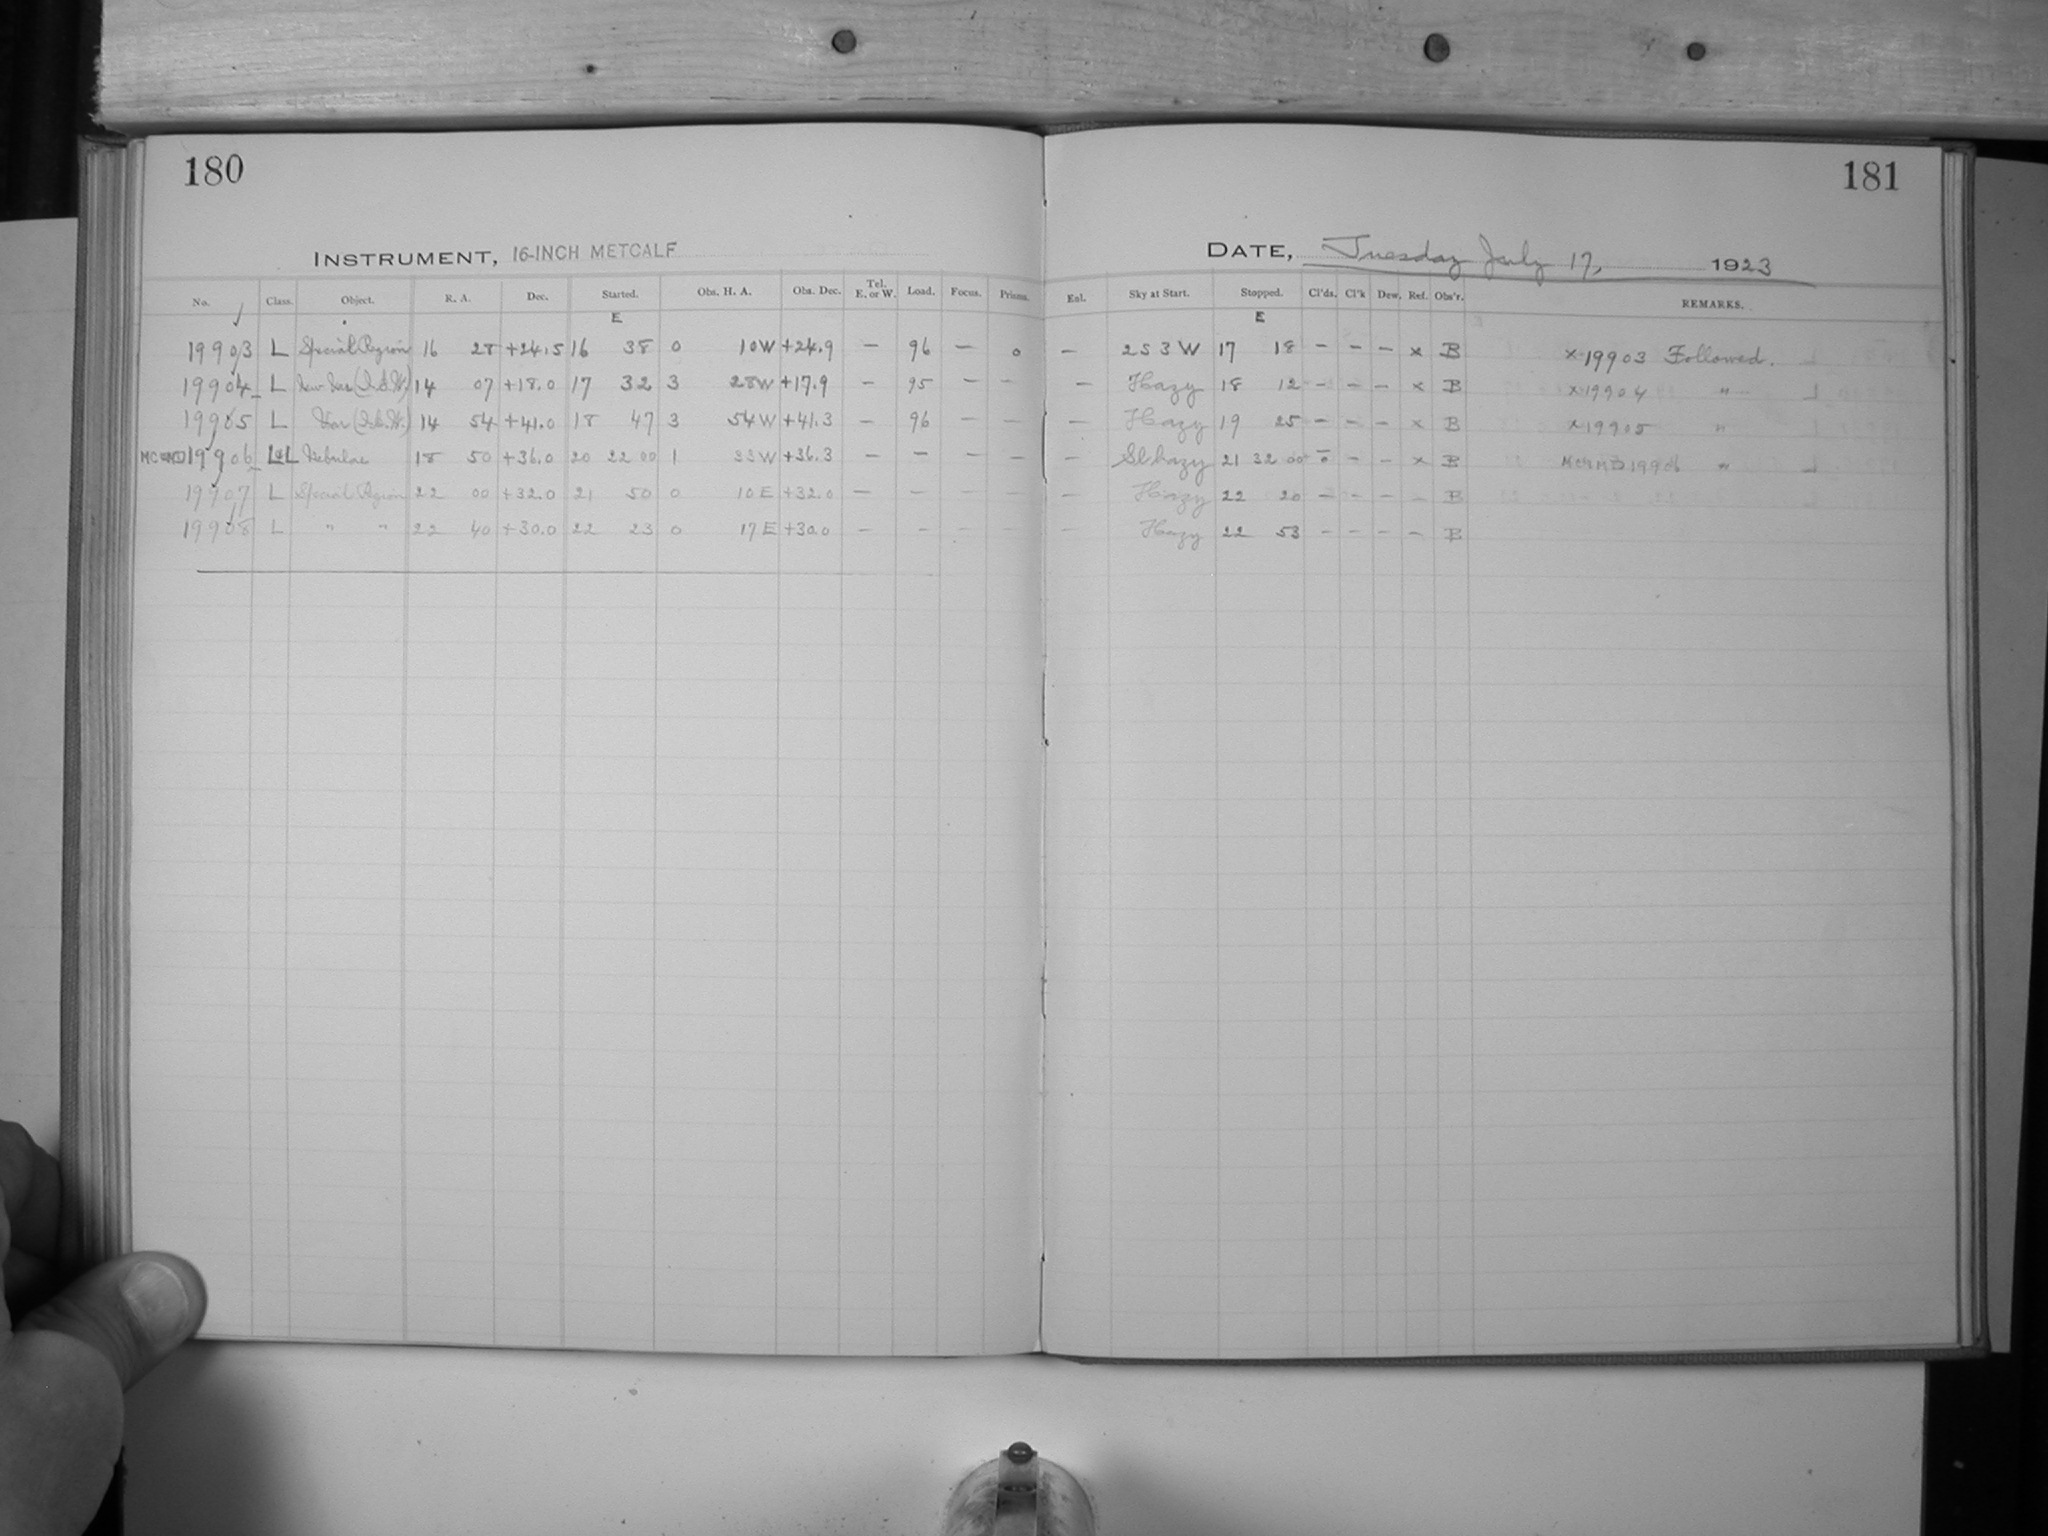 180
INSTRUMENT, 16-INCH METCALF
No. Class. Object. R. A. Dec. Started. Obs. H. A. Obs. Dec. Tel. E. or W. Load. Focus. Prisms.
E
19903 L Special Region 16 28 +24.5 16 38 0 10W +24.9 — 96 — 0
19904 L 14 07 +18.0 17 32 3 28W +17.9 — 95 — —
19905 L 14 54 +41.0 18 47 3 54W +41.3 — 96 — —
19906 Nebulae 18 50 +36.0 20 22 00 1 33W +36.3 — — — —
19907 L Special Region 22 00 +32.0 21 50 0 10E +32.0 — — — —
19908 L " " 22 40 +30.0 22 23 0 17E +30.0 — — — —
181
DATE, Tuesday July 17, 1923
Enl. Sky at Start. Stopped. Cl'ds. Cl'k Dew. Ref. Obs'r. REMARKS.
E
— 2S3W 17 18 — — — x B x 19903 Followed.
— Hazy 18 12 — — — x B x 19904 "
— Hazy 19 25 — — — x B x 19905 "
— Sl hazy 21 32 00 — — x B 19906 "
— Hazy 22 20 — — — — B
— Hazy 22 53 — — — — B